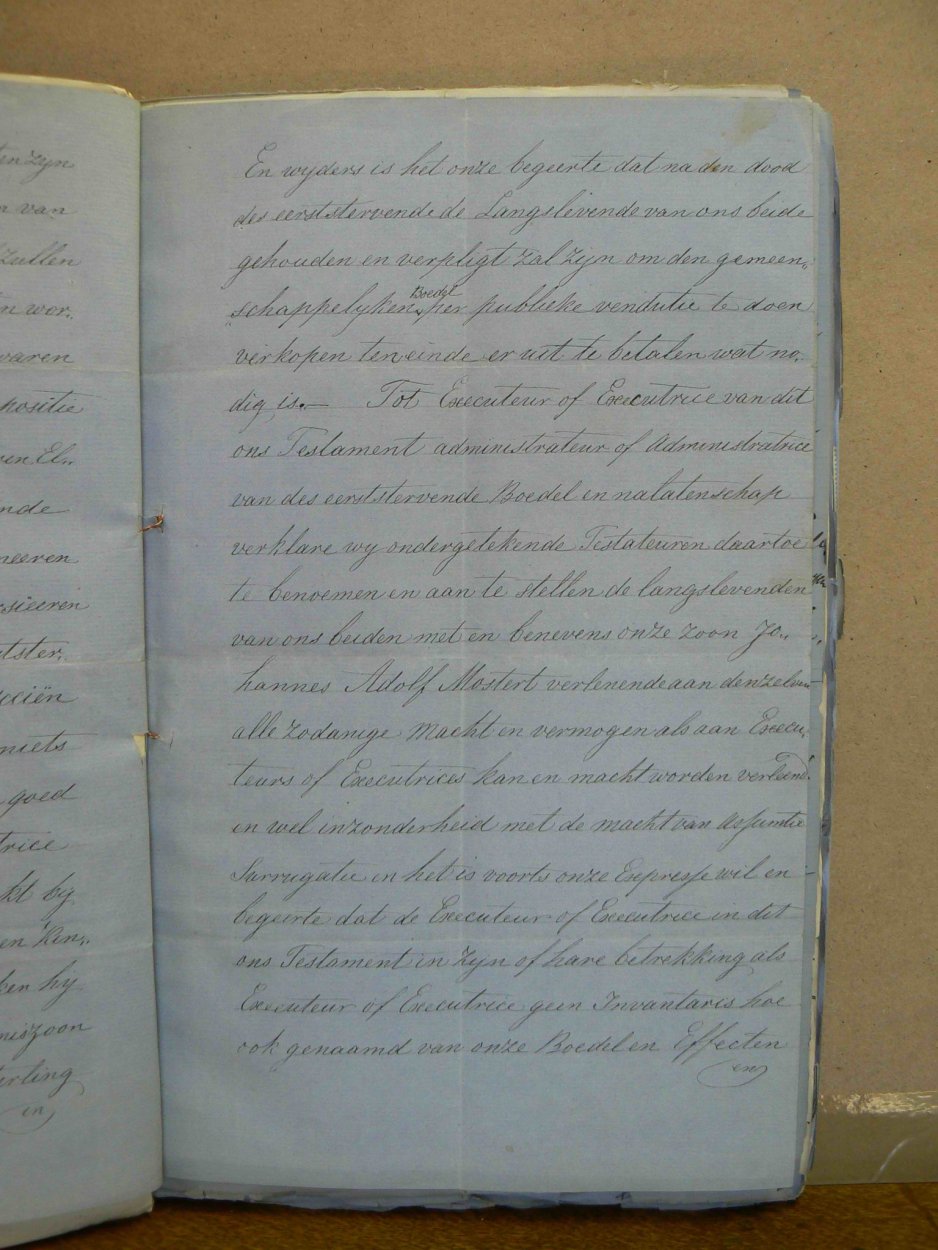 ten zyn
van
zullen
wor„
waren
positie
en El„
nde
neeren
sieeren
tster„
ciën
niets
goed
trice
kt by
en kin„
ken hy
niszoon
terling
in
En wyders is het onze begeerte dat na den dood
des eerststervende de Langslevende van ons beide
gehouden en verpligt zal zijn om den gemeen„
schappelyken Boedel per publieke vendutie te doen
verkopen ten einde er uit te betalen wat no„
dig is.— Tot Executeur of Executrice van dit
ons Testament administrateur of Administratrice
van des eerststervende Boedel en nalatenschap
verklare wy ondergetekende Testateuren daartoe
te benoemen en aan te stellen de langslevenden
van ons beiden met en benevens onze zoon Jo„
hannes Adolf Mostert verlenende aan denzelven
alle zodanige Macht en vermogen als aan Execu„
teurs of Executrices kan en macht worden verleend
en wel inzonderheid met de macht van Assumtie
Surrugatie en het is voorts onze Expresse wil en
begeerte dat de Executeur of Executrice in dit
ons Testament in zyn of hare betrekking als
Executeur of Executrice geen Invantaris hoe
ook genaamd van onze Boedel en Effecten
en